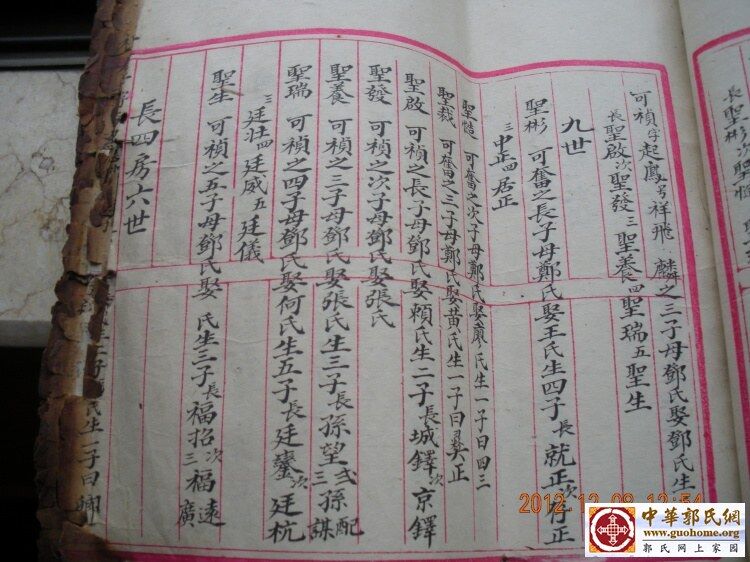 長聖彬次聖
可禎字起鳳号祥飛 麟之三子母鄧氏娶鄧氏生
長聖啟次聖發三聖養四聖瑞五聖生
九世
聖彬 可奮之長子母鄭氏娶王氏生四子長就正次存正
三中正四居正
可奮之次子母鄭氏娶廖氏生一子曰四三
聖裁 可奮之三子母鄭氏娶黄氏生一子曰奠正
聖啟 可禎之長子母鄧氏娶賴氏生二子長城鐸次京鐸
聖發 可禎之次子母鄧氏娶張氏
聖養 可禎之三子母鄧氏娶張氏生三子長孫望弍孫配三孫謀
聖瑞 可禎之四子母鄧氏娶何氏生五子長廷鏊次廷杭
三廷壯四廷威五廷儀
聖生 可禎之五子母鄧氏娶 氏生三子長福招次福遠三福廣
長四房六世
氏生一子曰
2012 12 09 12:54
中華郭氏網
www.guohome.org
郭氏网上家园